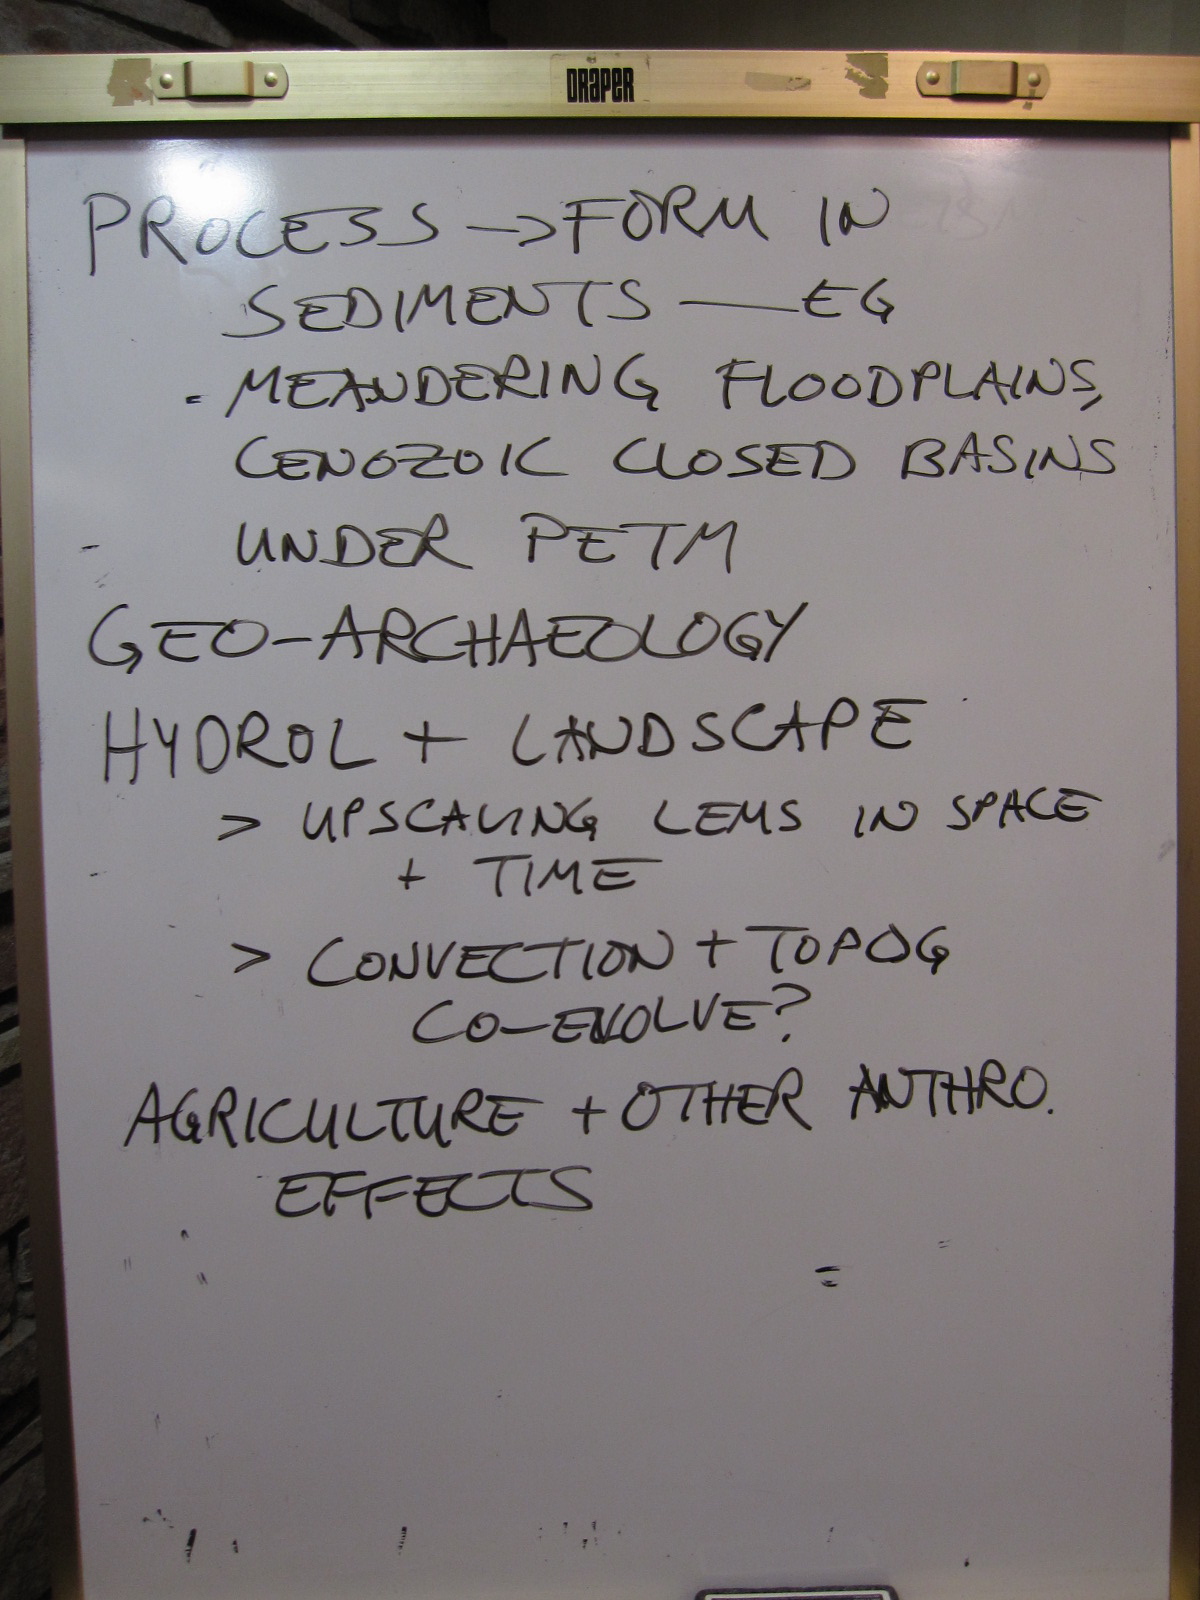 DRAPER
PROCESS → FORM IN
SEDIMENTS — EG
- MEANDERING FLOODPLAINS,
CENOZOIC CLOSED BASINS
UNDER PETM
GEO-ARCHAEOLOGY
HYDROL + LANDSCAPE
> UPSCALING LEMS IN SPACE
+ TIME
> CONVECTION + TOPOG
CO-EVOLVE?
AGRICULTURE + OTHER ANTHRO.
EFFECTS